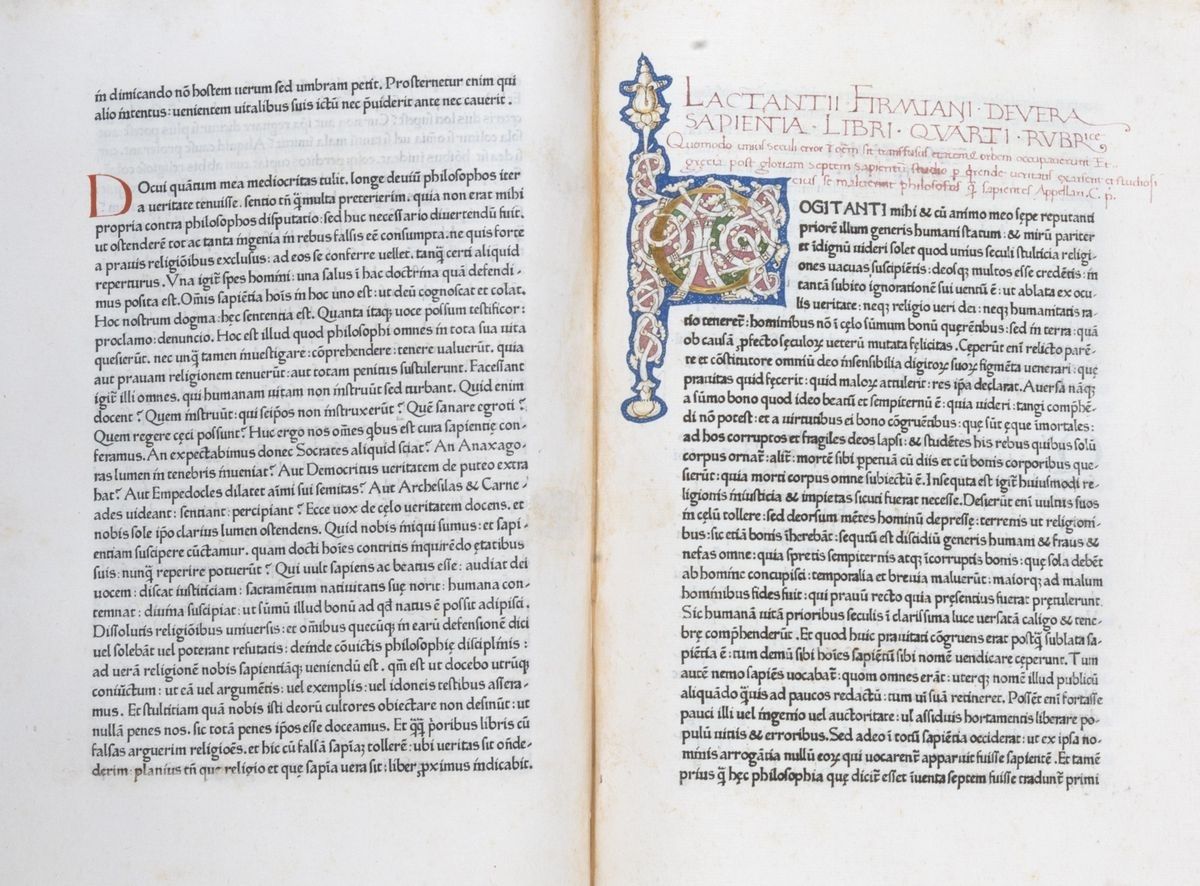 in dimicando nō hostem uerum sed umbram petit. Prosternetur enim qui
alio intentus: uenientem uitalibus suis ictū nec p̄uiderit ante nec cauerit.
DOcui quātum mea mediocritas tulit. longe deuiū philosophos iter
a ueritate tenuisse. sentio tn̄ q̄multa preterierim. quia non erat mihi
propria contra philosophos disputatio: sed huc necessario diuertendū fuit.
ut ostenderē tot ac tanta ingenia in rebus falsis eē consumpta. ne quis forte
a prauis religiōibus exclusus: ad eos se conferre uellet. tanq̄ certi aliquid
reperturus. Vna igit̄ spes homini: una salus i hac doctrina quā defendi-
mus posita est. Om̄is sapiētia hoīs in hoc uno est: ut deū cognoscat et colat.
Hoc nostrum dogma: hęc sententia est. Quanta itaqꝫ uoce possum testificor:
proclamo: denuncio. Hoc est illud quod philosophi omnes in tota sua uita
quesierūt. nec unq̄ tamen inuestigare: cōprehendere: tenere ualuerūt. quia
aut prauam religionem tenuerūt: aut totam penitus sustulerunt. Facessant
igit̄ illi omnes. qui humanam uitam non instruūt sed turbant. Quid enim
docent? Quem instruūt: qui seipos non instruxerūt? Quē sanare egroti?
Quem regere cęci possunt? Huc ergo nos om̄es qbus est cura sapientię con-
feramus. An expectabimus donec Socrates aliquid sciat? An Anaxago-
ras lumen in tenebris inueniat? Aut Democritus ueritatem de puteo extra
hat? Aut Empedocles dilatet aīmi sui semitas? Aut Archesilas & Carne-
ades uideant: sentiant: percipiant? Ecce uox de cęlo ueritatem docens. et
nobis sole ip̄o clarius lumen ostendens. Quid nobis iniqui sumus: et sapi-
entiam suscipere cūctamur. quam docti hoīes contritis inquirēdo ętatibus
suis: nunq̄ reperire potuerūt? Qui uult sapiens ac beatus esse: audiat dei
uocem: discat iustiticiam: sacramētum natiuitatis suę norit: humana con-
temnat: diuina suscipiat: ut sūmū illud bonū ad qd natus ē possit adipisci.
Dissolutis religiōibus uniuersis: et om̄ibus quecūqꝫ in earū defensionē dici
uel solebāt uel poterant refutatis: deinde cōuictis philosophię disciplinis:
ad uerā religionē nobis sapientiāqꝫ ueniendū est. qm̄ est ut docebo utrūqꝫ
coniūctum: ut eā uel argumētis: uel exemplis: uel idoneis testibus assera-
mus. Et stultitiam quā nobis isti deorū cultores obiectare non desinūt: ut
nullā penes nos. sic totā penes ip̄os esse doceamus. Et q̄q̄ p̄oribus libris cū
falsas arguerim religiōes. et hic cū falsā sapīaꝫ tollerē: ubi ueritas sit on̄de-
derim: planius tn̄ que religio et quę sapīa uera sit: liber ꝓximus indicabit.
LACTANTII · FIRMIANI · DEVERA
SAPIENTIA · LIBRI · QVARTI · RVBRice
Quomodo unius seculi error orbem occupauerunt Et
post gloriam septem sapientū ueritatis studiosi
se maluerunt philosophos q̄ sapientes Appellari. C. p.
COGITANTI mihi & cū animo meo sępe reputanti
priorē illum generis humani statum: & mirū pariter
et idignū uideri solet quod unius seculi stulticia religi-
ones uacuas suscipiētis: deosqꝫ multos esse credētis: in
tantā subito ignorationē sui uentū ē: ut ablata ex ocu-
lis ueritate: neqꝫ religio ueri dei: neqꝫ humanitatis ra-
tio tenereť: hominibus nō i cęlo sūmum bonū quęrētibus: sed in terra: quā
ob causā ꝓfecto sęculoꝝ ueterū mutata fęlicitas. Cęperūt enī relicto parē-
te et cōstitutore omniū deo insensibilia digitoꝝ suoꝝ figmēta uenerari: quę
prauitas quid fęcerit: quid maloꝝ attulerit: res ip̄a declarat. Auersa nāqꝫ
a sūmo bono quod ideo beatū et sempiternū ē: quia uideri: tangi comp̄hē-
di nō potest: et a uirtutibus ei bono cōgruētibus: quę sūt ęque imortales:
ad hos corruptos et fragiles deos lapsi: & studētes his rebus quibus solū
corpus ornať: aliť: mortē sibi ꝑpetuā cū diis et cū bonis corporibus que-
sierūt: quia morti corpus omne subiectū ē. Insequta est igiť huiusmodi re-
ligionis iniusticia & impietas sicuti fuerat necesse. Desierūt enī uultus suos
in cęlū tollere: sed deorsum mētes hominū depressę: terrenis ut religioni-
bus: sic etiā bonis īherebāt: sequtū est discidiū generis humani & fraus &
nefas omne: quia spretis sempiternis atqꝫ icorruptis bonis: quę sola debēt
ab homine concupisci: temporalia et breuia maluerūt: maiorqꝫ ad malum
hominibus fides fuit: qui prauū recto quia pręsentius fuerat pretulerunt.
Sic humanā uitā prioribus seculis i clarissima luce uersatā caligo & tene-
brę comp̄henderūt. Et quod huic prauitati cōgruens erat postq̄ sublata sa-
piētia ē: tum demū sibi hoīes sapiētū sibi nomē uendicare cęperunt. Tum
autē nemo sapiēs uocabať: quom omnes erāt: uterqꝫ nomē illud publicū
aliquādo q̄uis ad paucos redactū: tum uī suā retineret. Possēt enī fortasse
pauci illi uel ingenio uel auctoritate: ul̓ assiduis hortamentis liberare po-
pulū uitiis & erroribus. Sed adeo i totū sapiētia occiderat: ut ex ipsa no-
minis arrogātia nullū eoꝝ qui uocarenť apparuit fuisse sapientē. Et tamē
prius q̄ hęc philosophia quę diciť esset iuenta septem fuisse tradunť primi